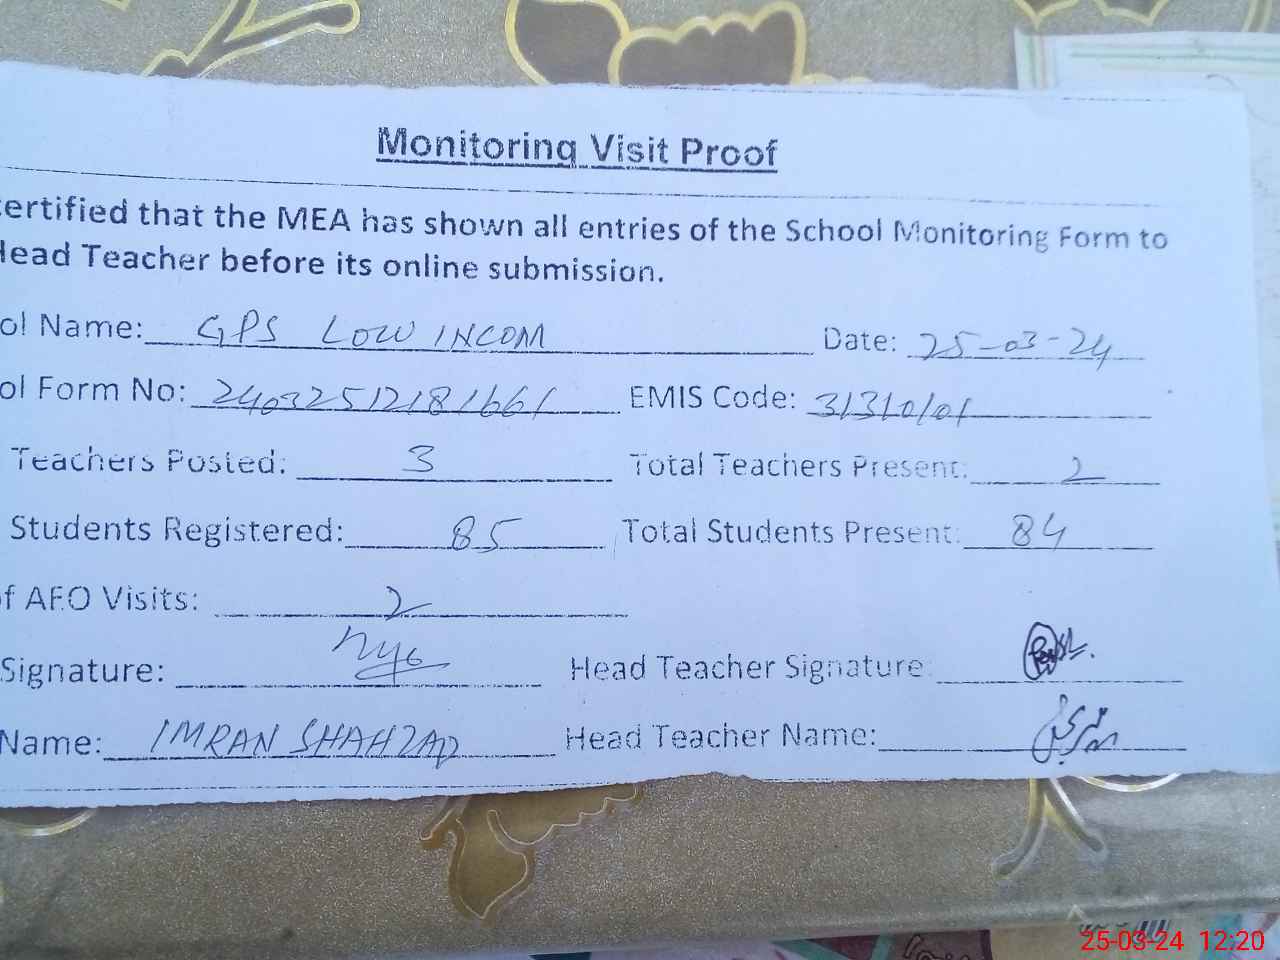 Monitoring Visit Proof
ertified that the MEA has shown all entries of the School Monitoring Form to
Head Teacher before its online submission.
ol Name: GPS LOW INCOM Date: 25-03-24
ol Form No: 24032512181661 EMIS Code: 31310101
Teachers Posted: 3 Total Teachers Present: 2
Students Registered: 85 Total Students Present: 84
f AEO Visits: 2
Signature: Head Teacher Signature:
Name: IMRAN SHAHZAD Head Teacher Name:
25-03-24 12:20